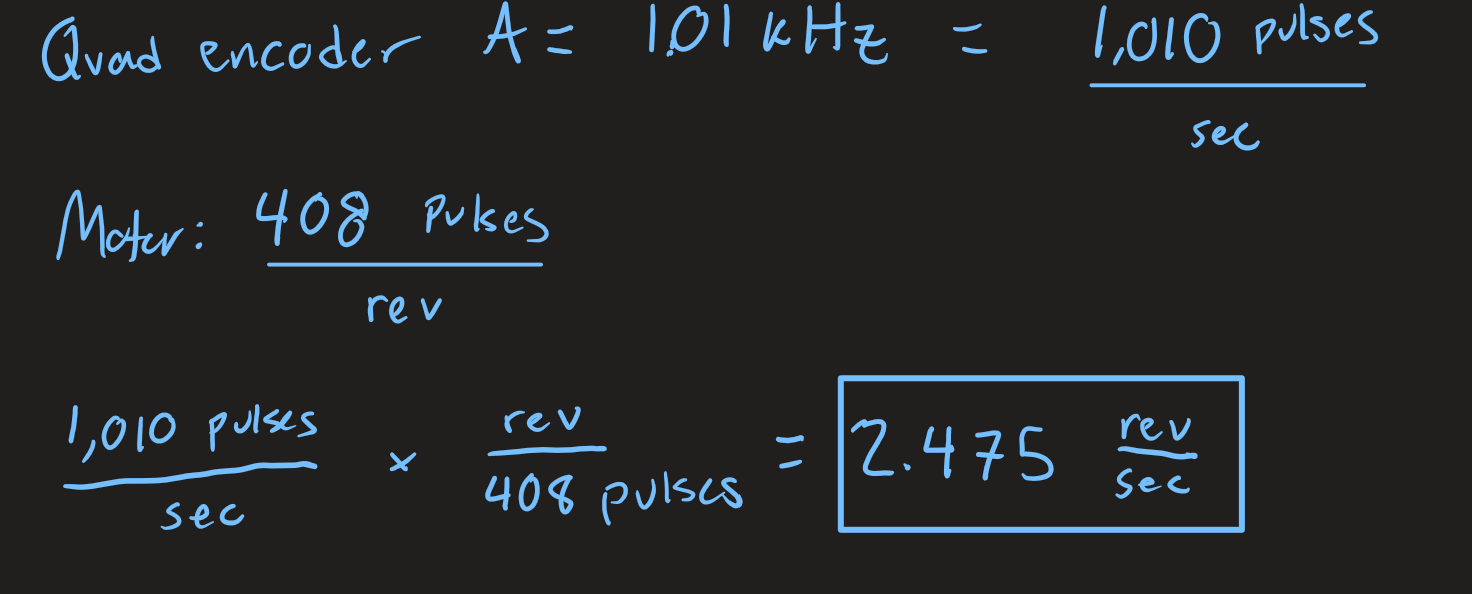 Quad encoder A = 1.01 kHz = 1,010 pulses
sec
Motor: 408 Pulses
rev
1,010 pulses × rev = 2.475 rev
sec 408 pulses sec